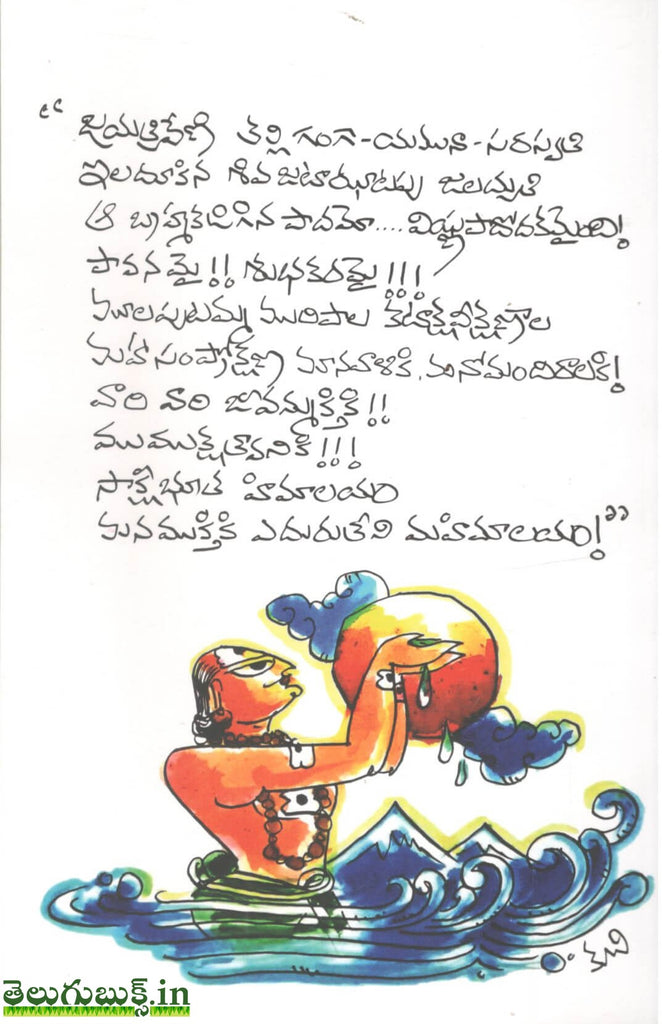 “జయత్రివేణి తల్లి గంగా-యమునా-సరస్వతి
ఇలదూకిన శివజటాఝాటపు జలదృతి
ఆ బ్రాహ్మకడిగిన పాదమో.... విష్ణుపాదోదకమైంది!
పావనమై!! శుభకరమై!!!
మూలపుటమ్మ మురిపాల కటాక్షవీక్షణాల
మహాసంప్రోక్షణ మానవాళికి, మనోమందిరాలకి!
వారి వారి జీవన్ముక్తికి!!
ముముక్షుత్వానికి!!!
సాక్షిభూత హిమాలయం
మనముక్తికి ఎదురులేని మహిమాలయం!”
కూచి
తెలుగుబుక్స్.in